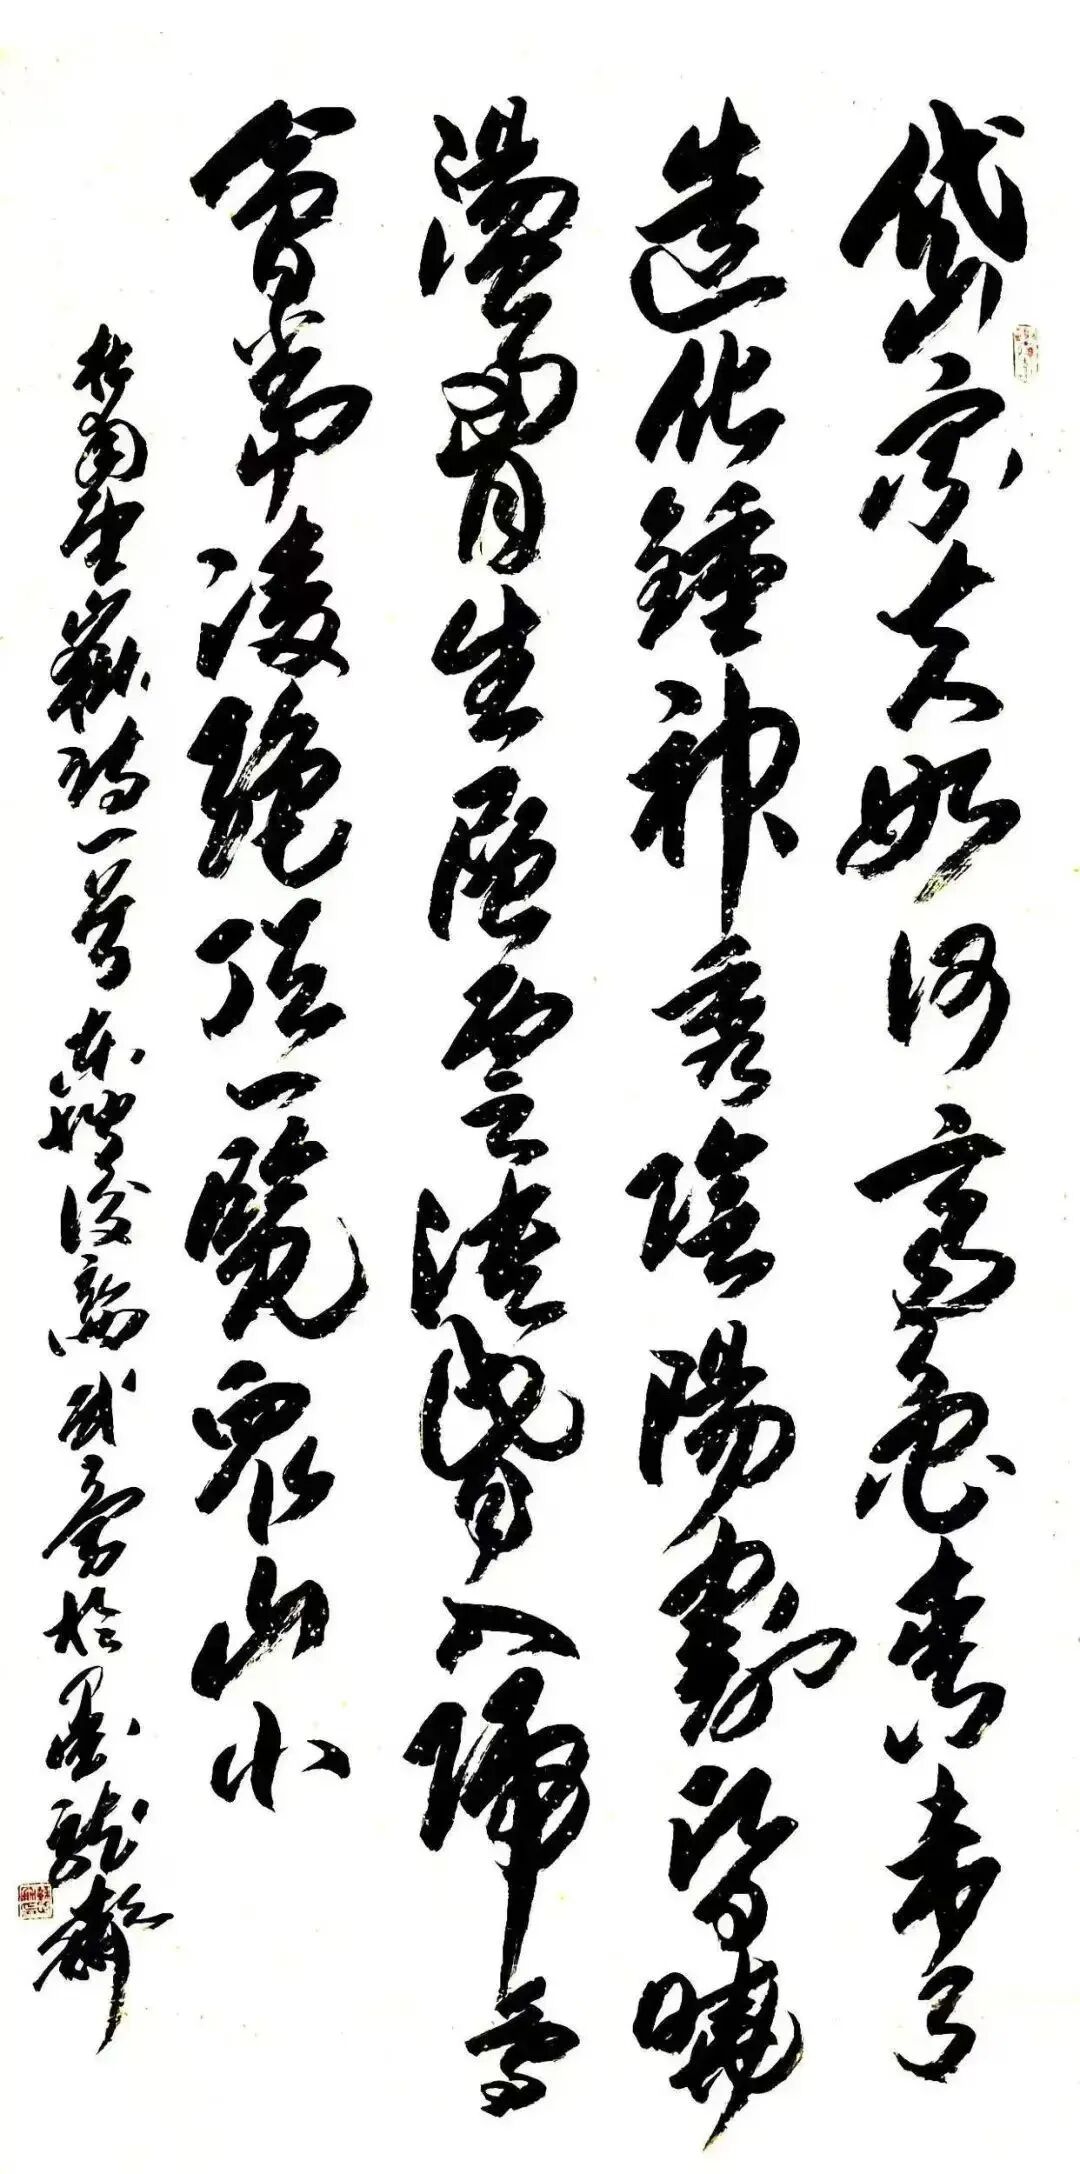 岱宗夫如何齊魯青未了
造化鍾神秀陰陽割昏曉
蕩胸生層雲決眥入歸鳥
會當凌絕頂一覽眾山小
杜甫望嶽詩一首東坡後裔於墨龍齋